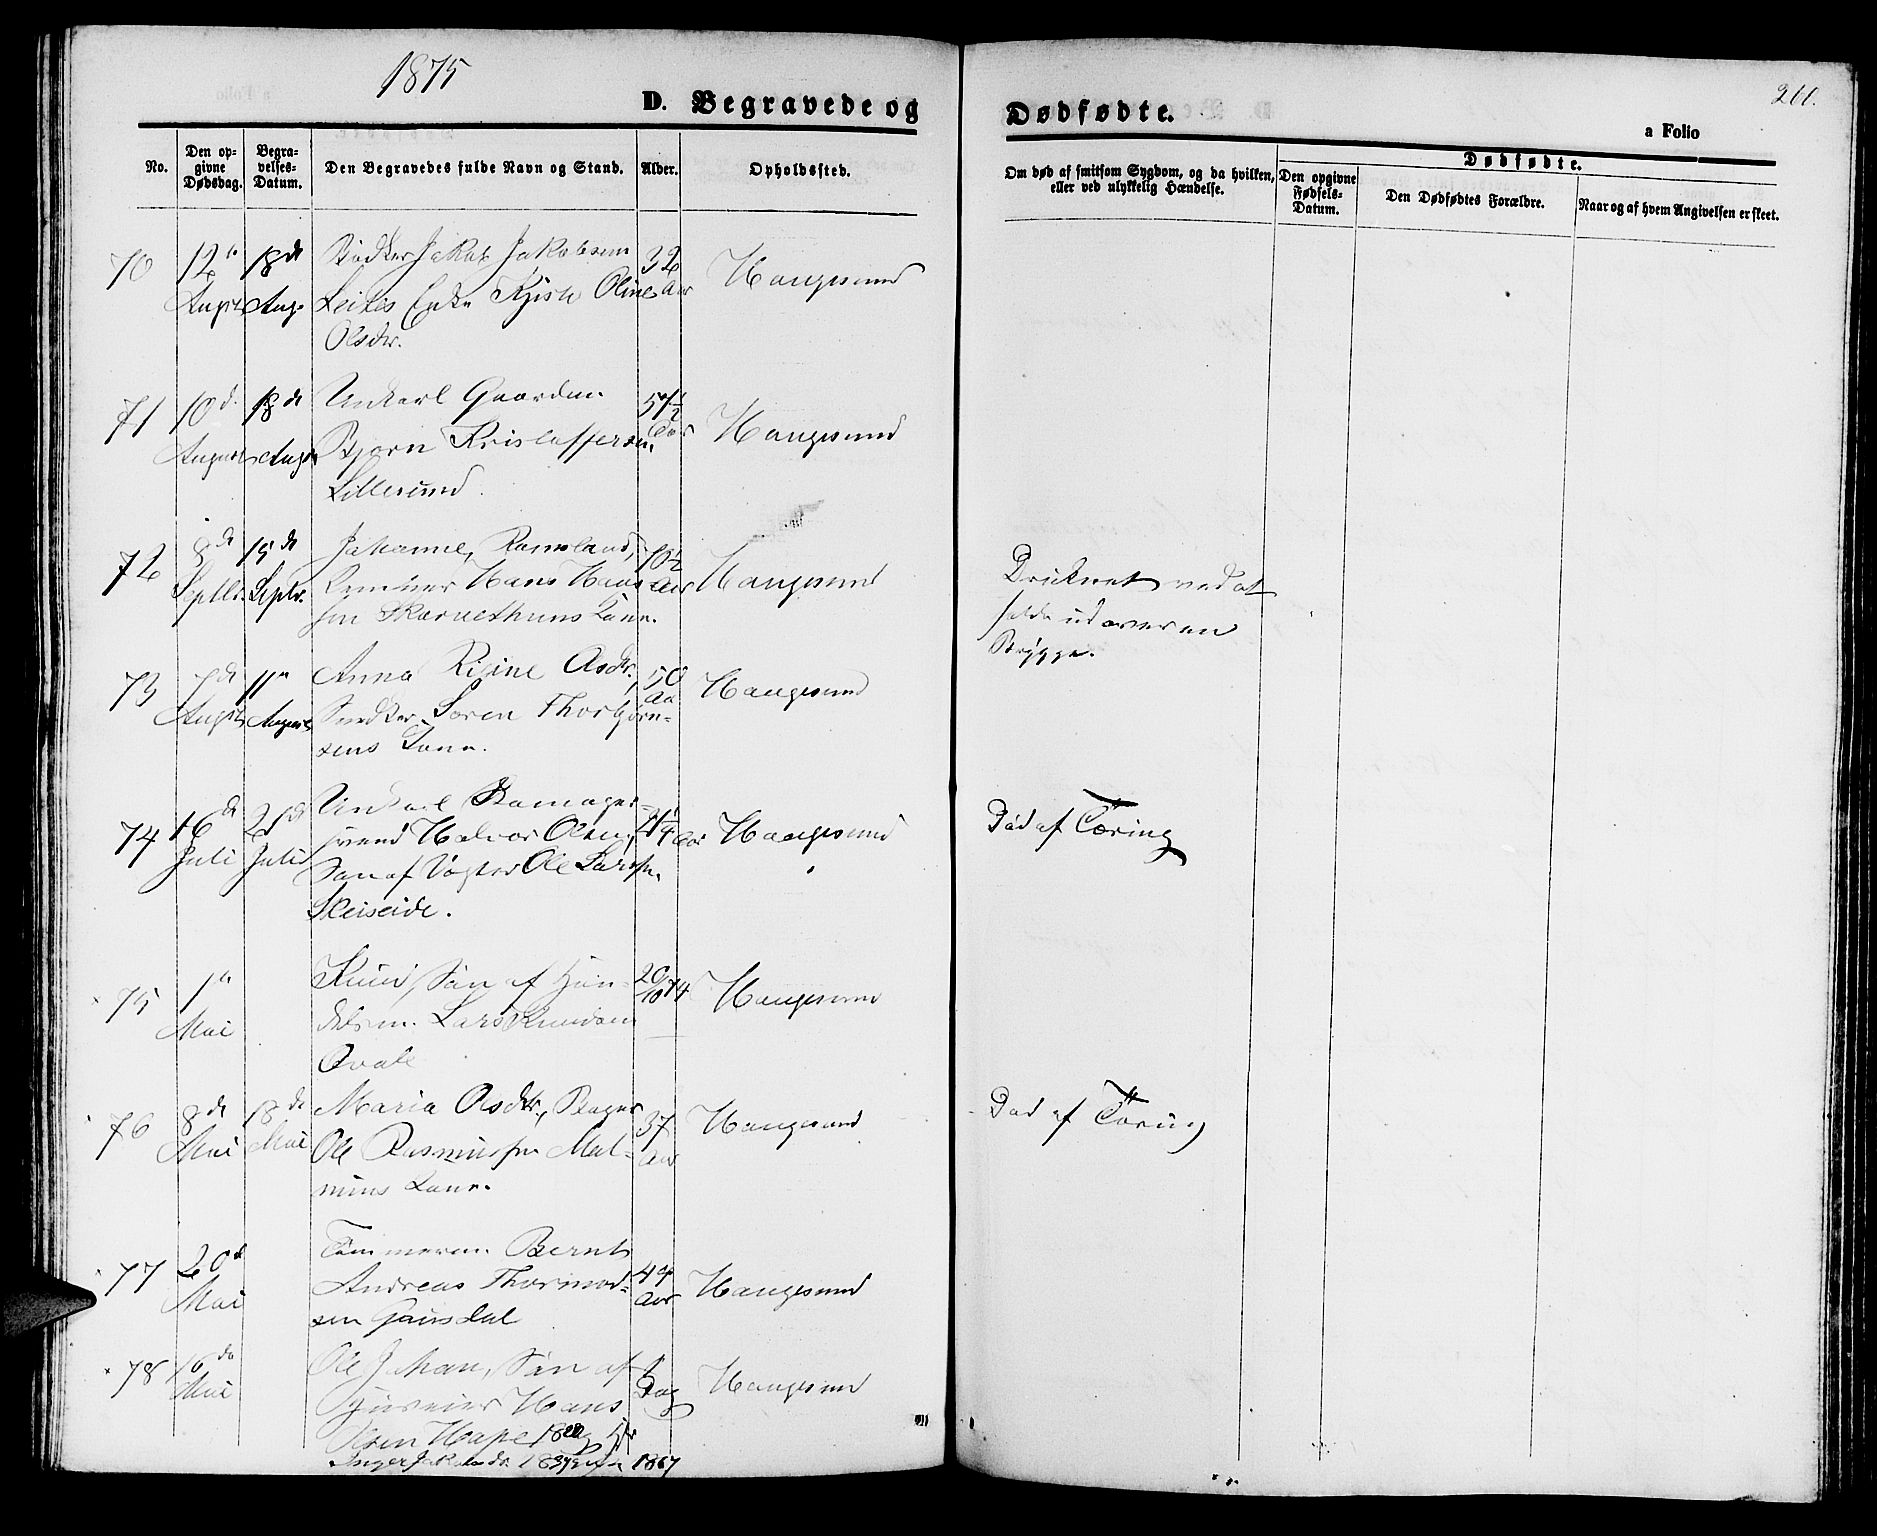 1875
D. Begravede og
Dødfødte.
211.
a Folio
No.
Den op-
givne
Dødsdag.
Begra-
velses-
Datum.
Den Begravedes fulde Navn og Stand.
Alder.
Opholdssted.
Om død af smitsom Sygdom, og da hvilken,
eller ved ulykkelig Hændelse.
Dødfødte.
Den opgivne
Fødsels-
Datum.
Den Dødfødtes Forældre.
Naar og af hvem Angivelsen er skeet.
70
12te
August
18de
Aug.
Bødker Jakob Jakobsen
Enke Oline
Olsdtr.
32
Aar
Haugesund
71
10de
August
18de
Aug.
Unkarl Gaardm.
Bjørn Kristoffersen
Lillesund.
57½
Aar
Haugesund
72
8de
Septbr.
15de
Septbr.
Johanne, Ramsland,
Hans Han-
sen Kone.
Aar
Haugesund
Druknet ved at
falde ud over en
Brygge.
73
7de
August
11te
August
Anna Olsdtr.,
Snedker Søren Thorbjørn-
sens Kone.
50
Aar
Haugesund
74
16de
Juli
21de
Juli
Unkarl Skomager-
svend Halvor Olsen,
Søn af Ole Larsen
Skeiseide.
21¼
Aar
Haugesund
Død af Tæring
75
1te
Mai
Knud, Søn af Han-
delsm. Lars Knudsen
Qvale
20/10 74
Haugesund
76
8de
Mai
18de
Mai
Maria Olsdtr., Bager
Ole Rasmussen Mal-
mins Kone.
37
Aar
Haugesund
Død af Tæring
77
20de
Mai
Tømmerm. Bernt
Andreas Thormod-
sen Gausdal
44
Aar
Haugesund
78
16de
Mai
Ole Johan, Søn af
Huseier Hans
Olsen
1
Dag
Haugesund
1867